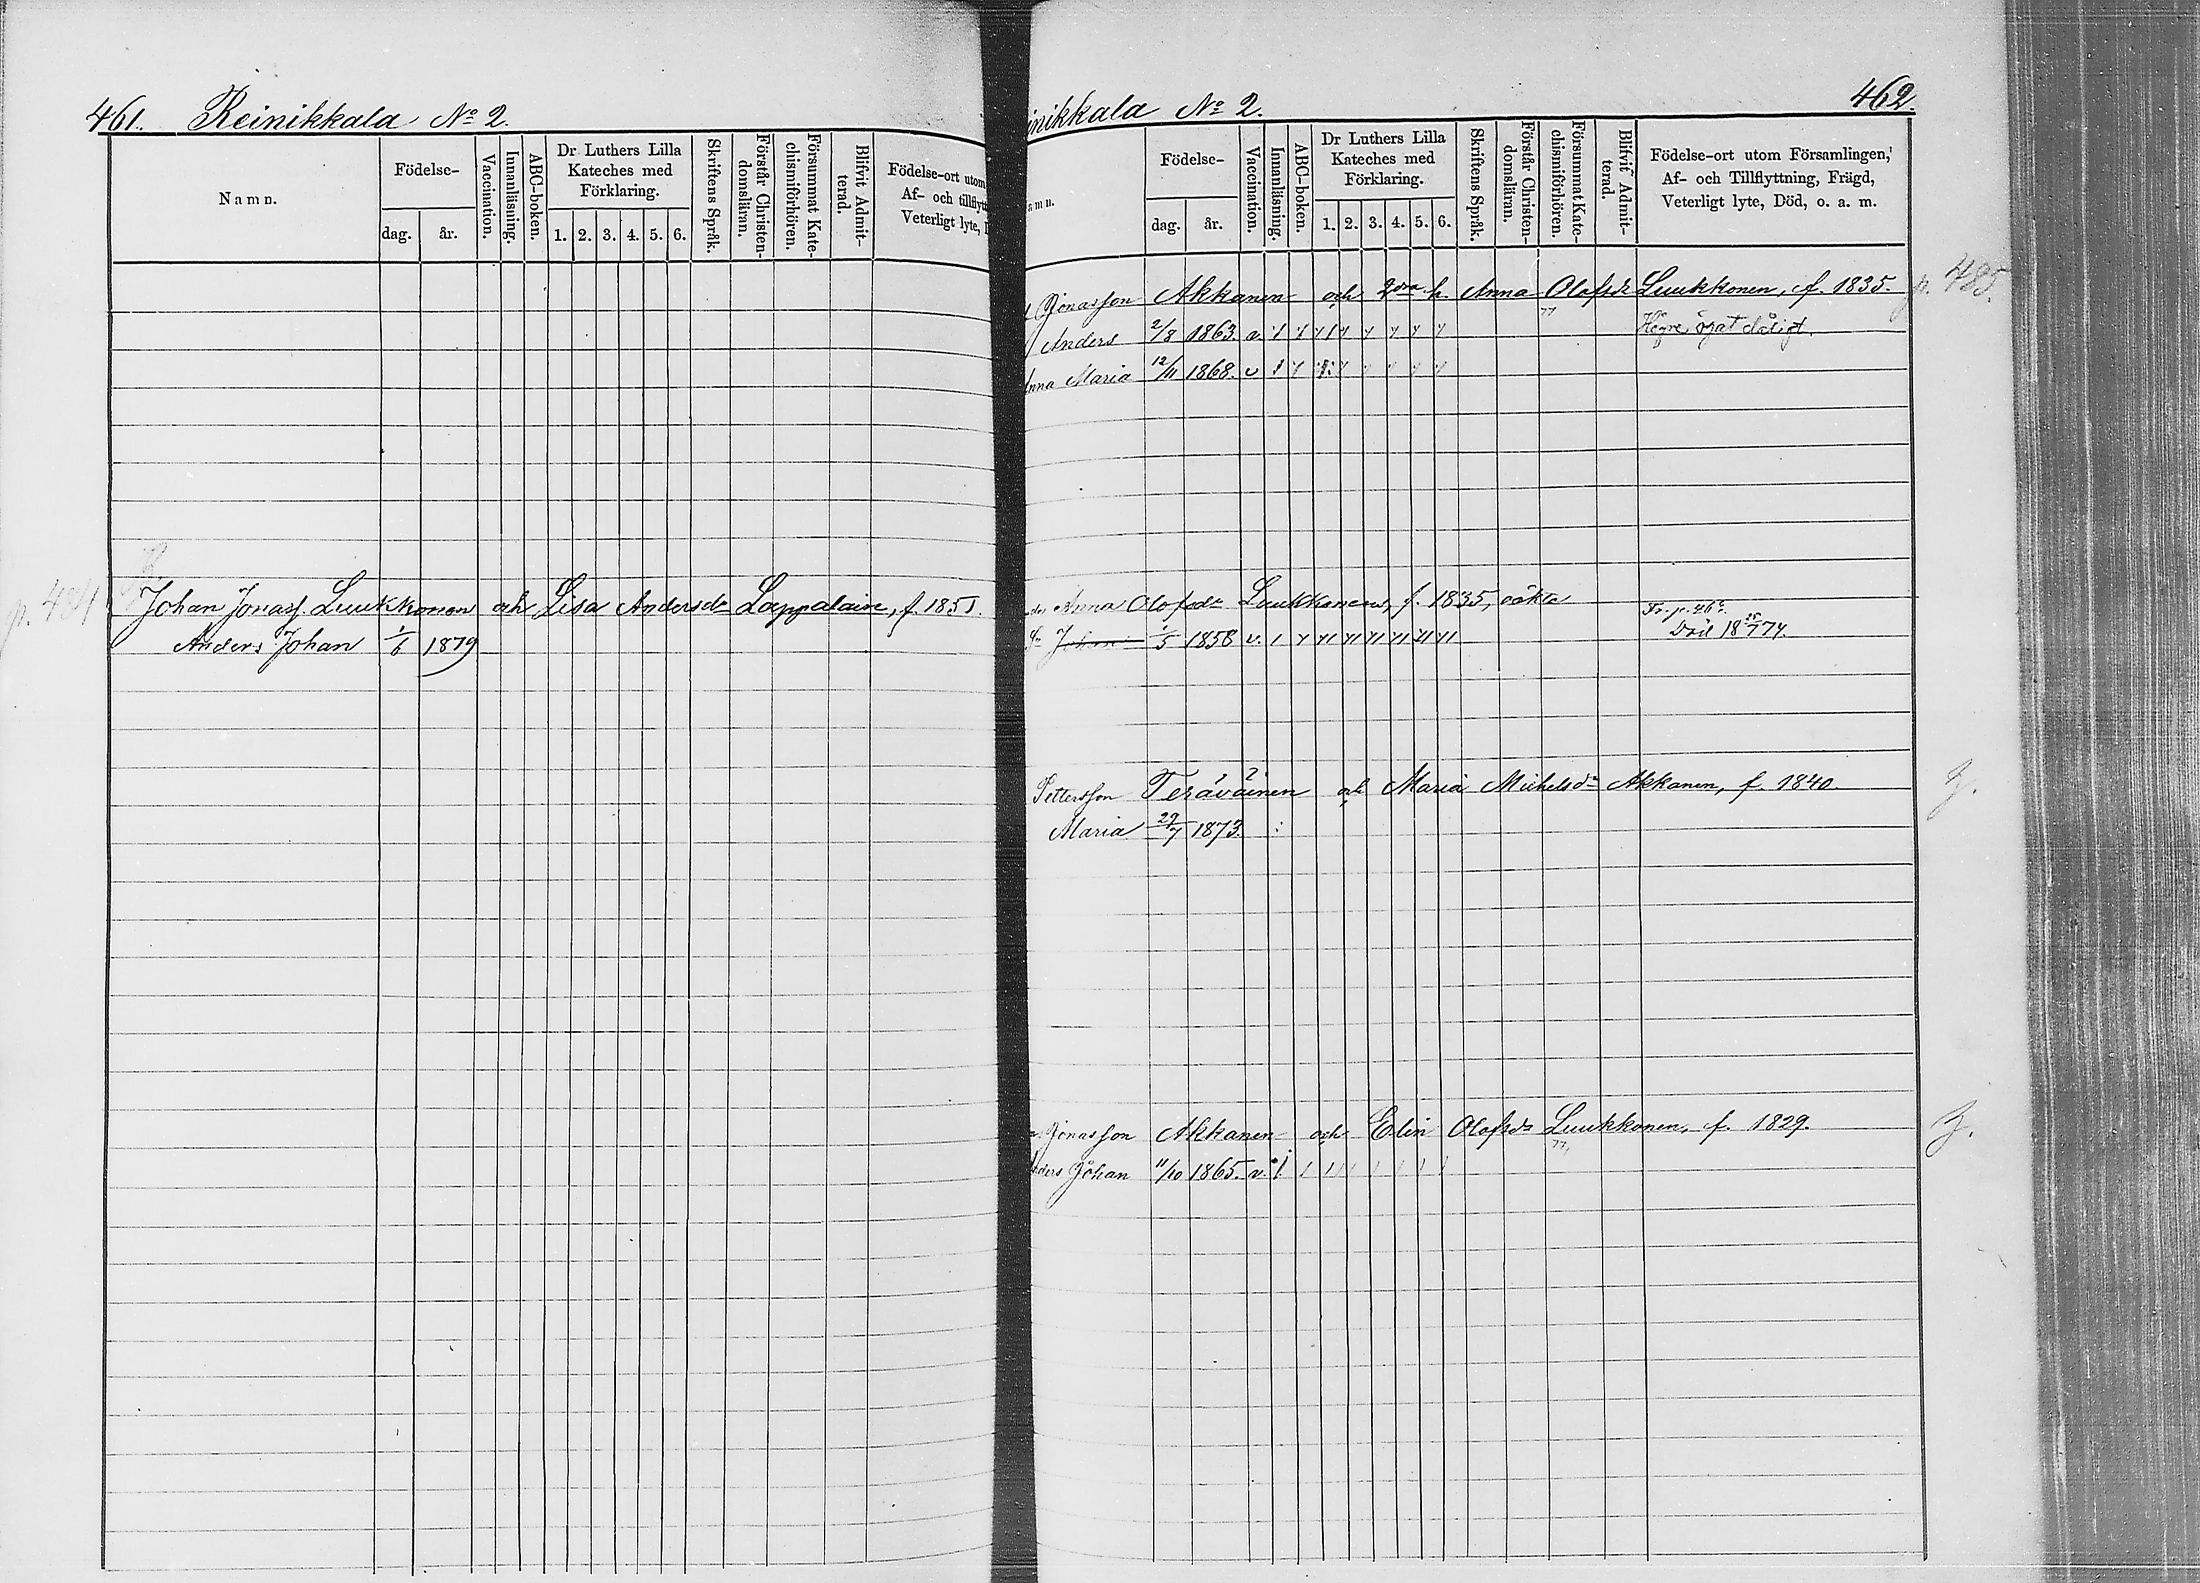 461. Reinikkala No 2.
Namn.
Födelse-
dag. år.
Vaccination.
Innanläsning.
ABC-boken.
Dr Luthers Lilla
Kateches med
Förklaring.
1. 2. 3. 4. 5. 6.
Skriftens Språk.
Förstår Christen-
domsläran.
Försummat Kate-
chismiförhören.
Blifvit Admit-
terad.
Födelse-ort utom
Af- och tillflytt
Veterligt lyte,
p. 484
Johan Jonass. Luukkonen och Lisa Andersdr Lappalain, f. 1851.
Anders Johan 1/6 1879
inikkala No 2. 462.
amn.
Födelse-
dag. år.
Vaccination.
Innanläsning.
ABC-boken.
Dr Luthers Lilla
Kateches med
Förklaring.
1. 2. 3. 4. 5. 6.
Skriftens Språk.
Förstår Christen-
domsläran.
Försummat Kate-
chismiförhören.
Blifvit Admit-
terad.
Födelse-ort utom Församlingen,
Af- och Tillflyttning, Frägd,
Veterligt lyte, Död, o. a. m.
Jonasson Akkanen och 2dra h. Anna Olofsdr Luukkonen, f. 1835. p. 485.
Anders 2/8 1863. v. Högre ögat dåligt.
nna Maria 12/11 1868. v
Anna Olofsdr Luukkonens, f. 1835, oäkta
Johan 1/5 1858 v. Fr. p. 46
Död 18 74.
Pettersson Teräväinen och Maria Michelsdr Akkanen, f. 1840.
Maria 29/7 1873.
Jonasson Akkanen och Elin Olofsdr Luukkonen, f. 1829.
nders Johan 11/10 1865. v.